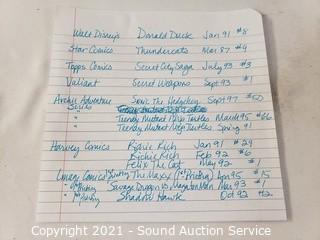 Walt Disney's Donald Duck Jan 91 #8
Star Comics Thundercats Mar 87 #4
Topps Comics Secret City Saga July 93 #3
Valiant Secret Weapons Sept 93 #1
Archie Adventure Sonic The Hedgehog Sept 97 #50
Series
" Teenage Mutant Ninja Turtles March 95 #66
" Teenage Mutant Ninja Turtles Spring #1
Harvey Comics Richie Rich Jan 91 #24
Richie Rich Feb 92 #6
Felix The Cat May 92 #
Image Comics 1st Printing The Maxx (1st Printing) Apr 95 #15
" 1st Printing Savage Dragon vs Megaton Man Mar 93 #1
" 1st Printing Shadow Hawk Oct 92 #2
Copyright 2021 - Sound Auction Service